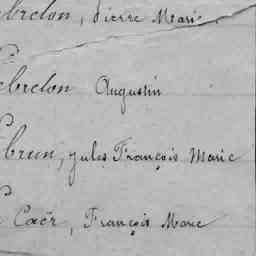 ebreton, Pierre Marie
ebreton Augustin
brun, Jules François Marie
Caër, François Marie